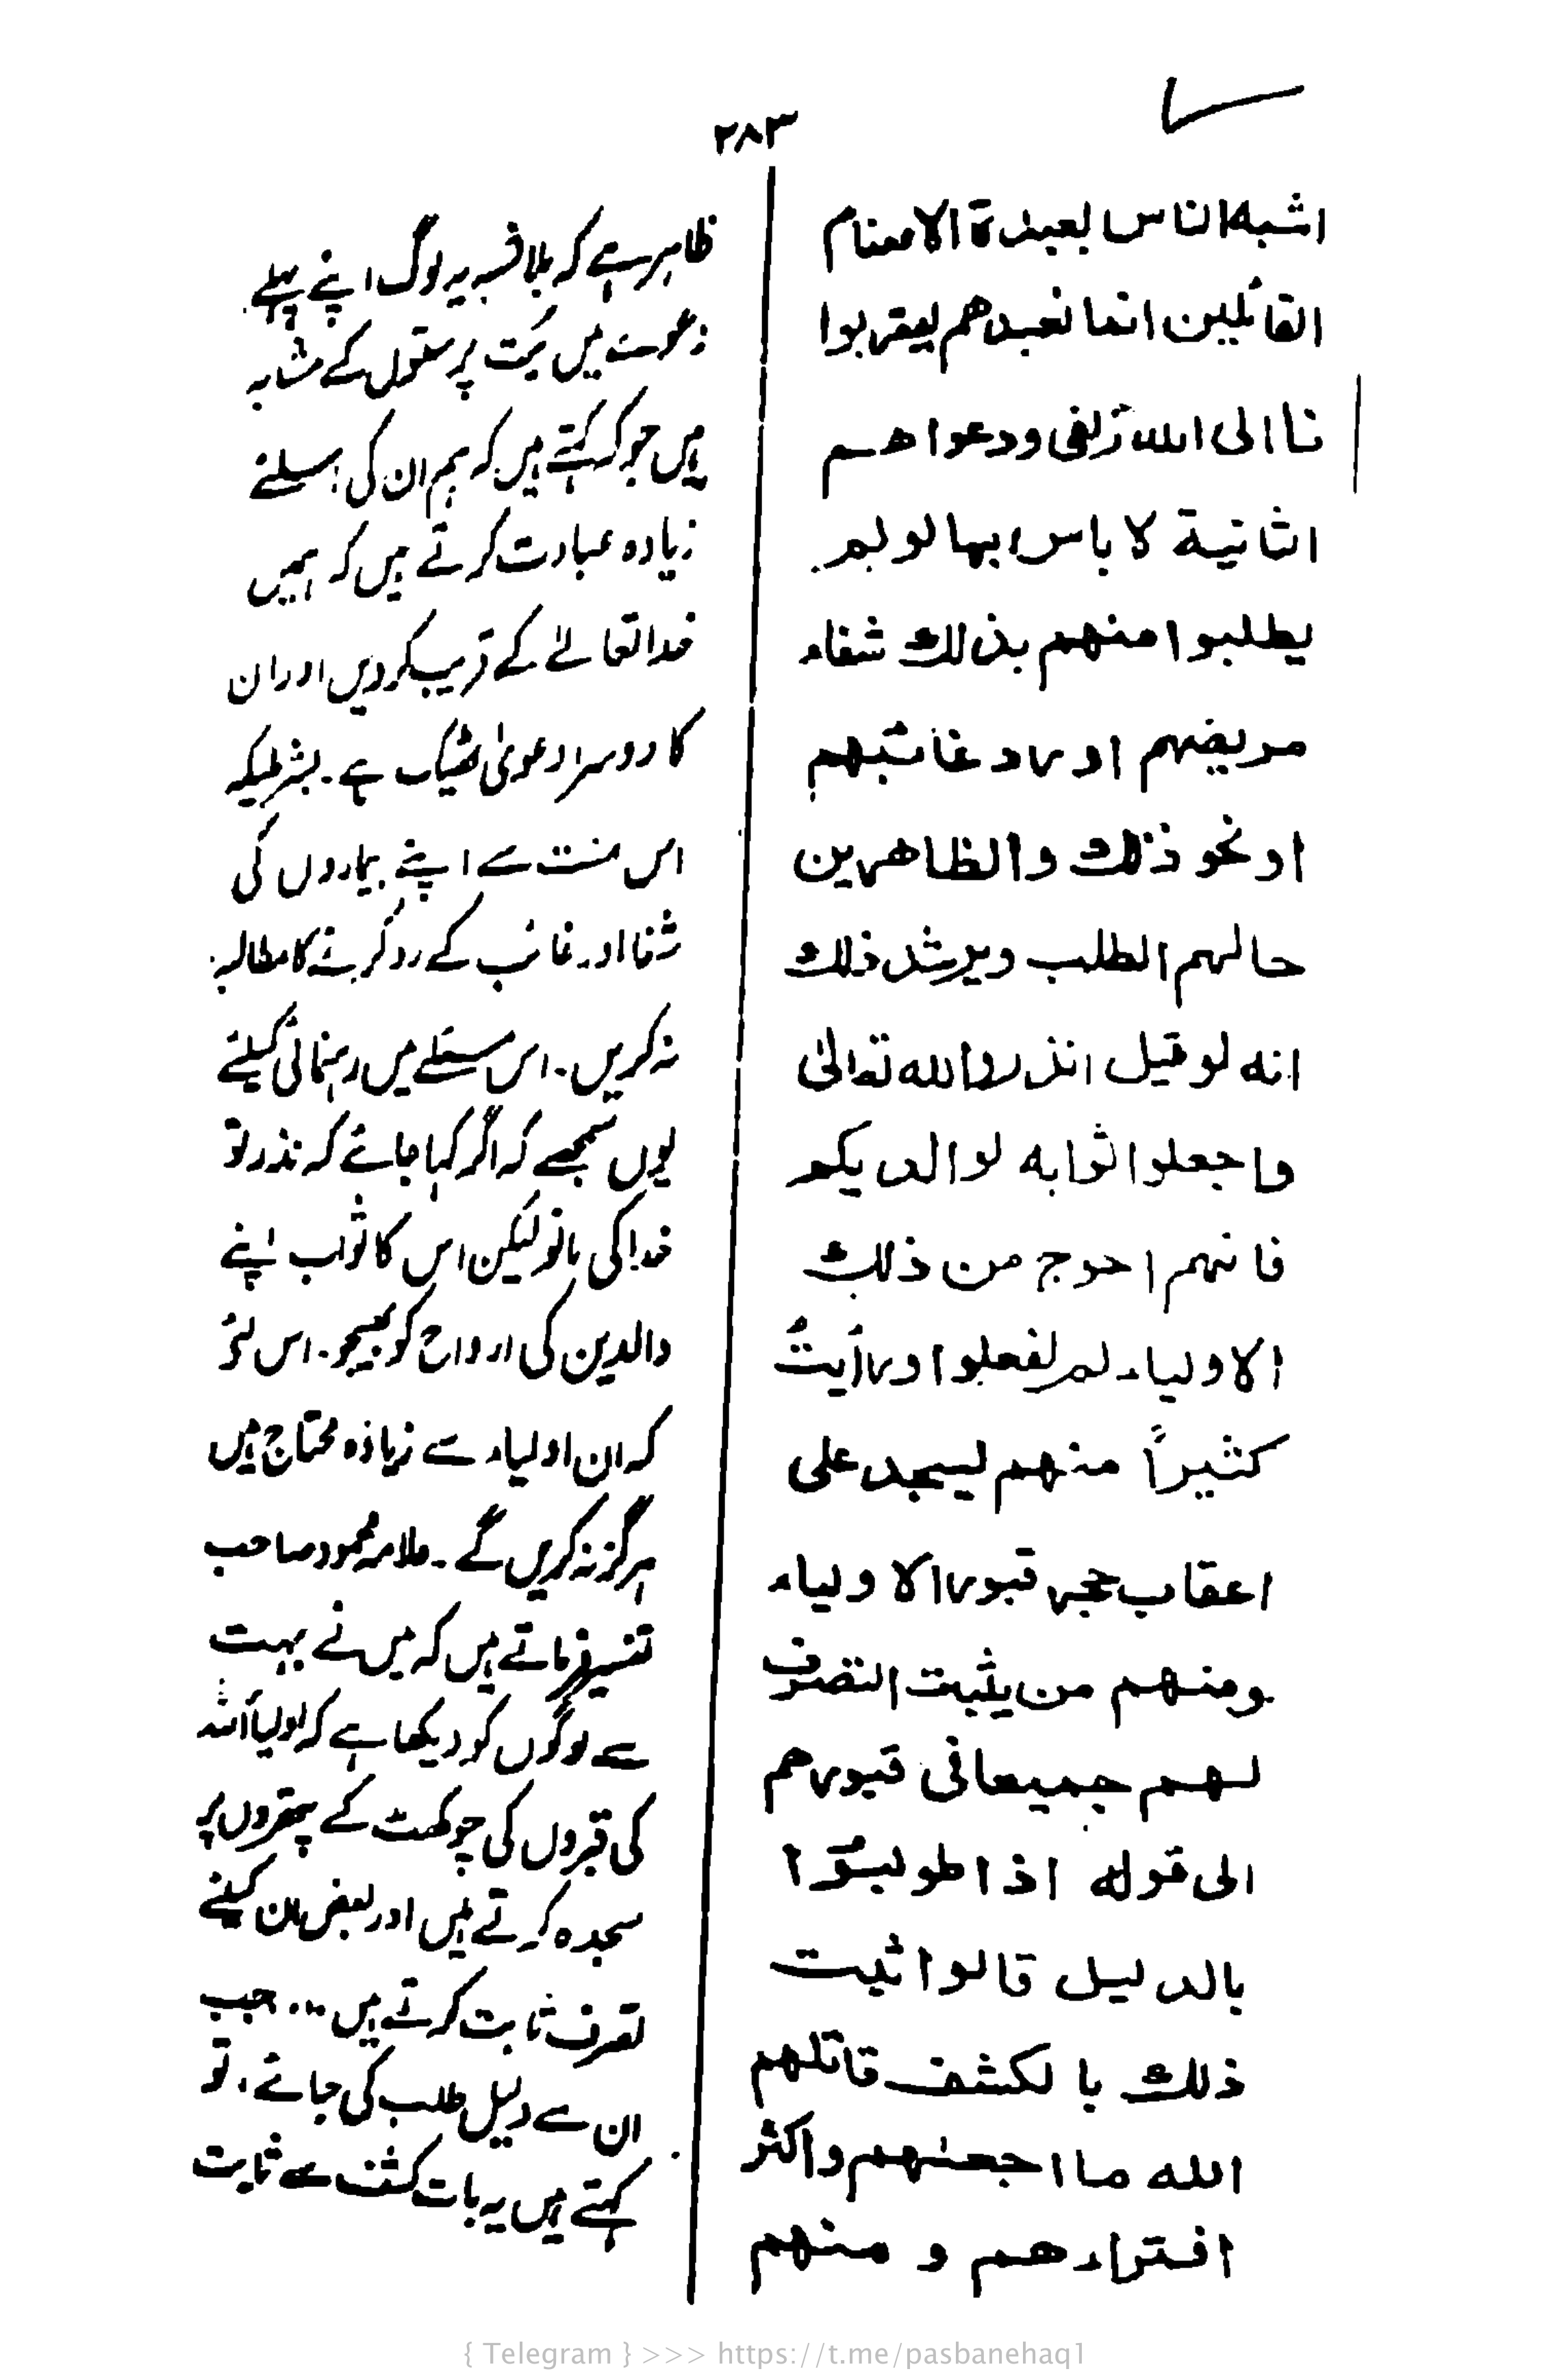 ۲۸۳
اشبه الناس بعبدة الاصنام
القائلين انما نعبدهم ليقربوا
نا الى الله زلفى ودعواهم
الثانية لا باس بها لو لم
يطلبوا منهم بذلك شفاء
مريضهم او رد غائبهم
او نحو ذلك والظاهر من
حالهم الطلب ويرشد ذلك
انه لو قيل انذروا لله تعالىٰ
واجعلوا ثوابه لوالديكم
فانهم احوج من ذلك
الاولياء لم يفعلوا ورأيتُ
كثيراً منهم ليسجد على
اعقاب حجر قبور الاولياء
ومنهم من يثبت التصرف
لهم جميعا فى قبورهم
الى قوله اذا طولبوا
بالدليل قالوا ثبت
ذلك بالكشف قاتلهم
الله ما اجهلهم واكثر
افتراءهم و منهم
ظاہر ہے کہ بلاشبہ یہ لوگ اپنے پہلے
دعوے میں بُت پرستوں کے مشابہ
ہیں جو کہ کہتے ہیں کہ ہم ان کی اسلئے
زیادہ عبادت کرتے ہیں کہ ہمیں
خدا تعالےٰ کے قریب کر دیں اور ان
کا دوسرا دعویٰ ٹھیک ہے۔ بشرطیکہ
اس منت سے اپنے بیماروں کی
شفا اور غائب کے رد کرنے کا مطالبہ
نہ کریں۔ اس مسئلے میں رہنمائی کیلئے
یوں سمجھے کہ اگر کہا جائے کہ نذر تو
خدا کی مانو لیکن اس کا ثواب اپنے
والدین کی ارواح کو بھیجو۔ اس لئے
کہ ان اولیاء سے زیادہ محتاج ہیں
ہرگز نہ کریں گے۔ علامہ محمود صاحب
تفسیر فرماتے ہیں کہ میں نے بہت
سے لوگوں کو دیکھا ہے کہ اولیاء اللہ
کی قبروں کی چوکھٹ کے پتھروں پر
سجدہ کرتے ہیں اور بعض ان کیلئے
تصرف ثابت کرتے ہیں ... جب
ان سے دلیل طلب کی جائے، تو
کہتے ہیں یہ بات کشف سے ثابت
{ Telegram } >>> https://t.me/pasbanehaq1